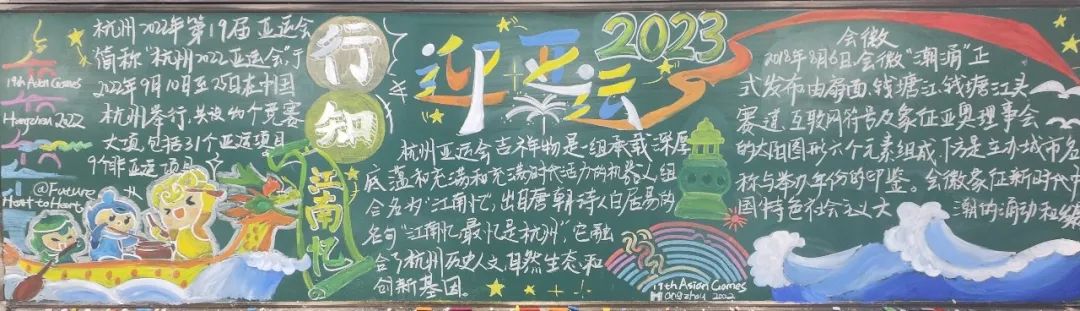 杭州2022年第19届亚运会
简称“杭州2022亚运会”,于
2022年9月10日至25日在中国
杭州举行,共设40个竞赛
大项,包括31个亚运项目
9个非亚运项目
19th Asian Games
Hangzhou 2022
@Future
Heart to Heart
行
知
江南忆
迎亚运
2023
杭州亚运会吉祥物是一组承载深厚
底蕴和充满和充满时代活力的机器人组
合名为“江南忆,出自唐朝诗人白居易的
名句“江南忆最忆是杭州”,它融
合了杭州历史人文,自然生态和
创新基因。
19th Asian Games
Hangzhou 2022
会徽
2018年8月6日,会徽“潮涌”正
式发布由扇面,钱塘江,钱塘江头
赛道,互联网符号及象征亚奥理事会
的太阳图形六个元素组成,下方是主办城市名
称与举办年份的印鉴。会徽象征新时代中
国特色社会主义大
潮的涌动和